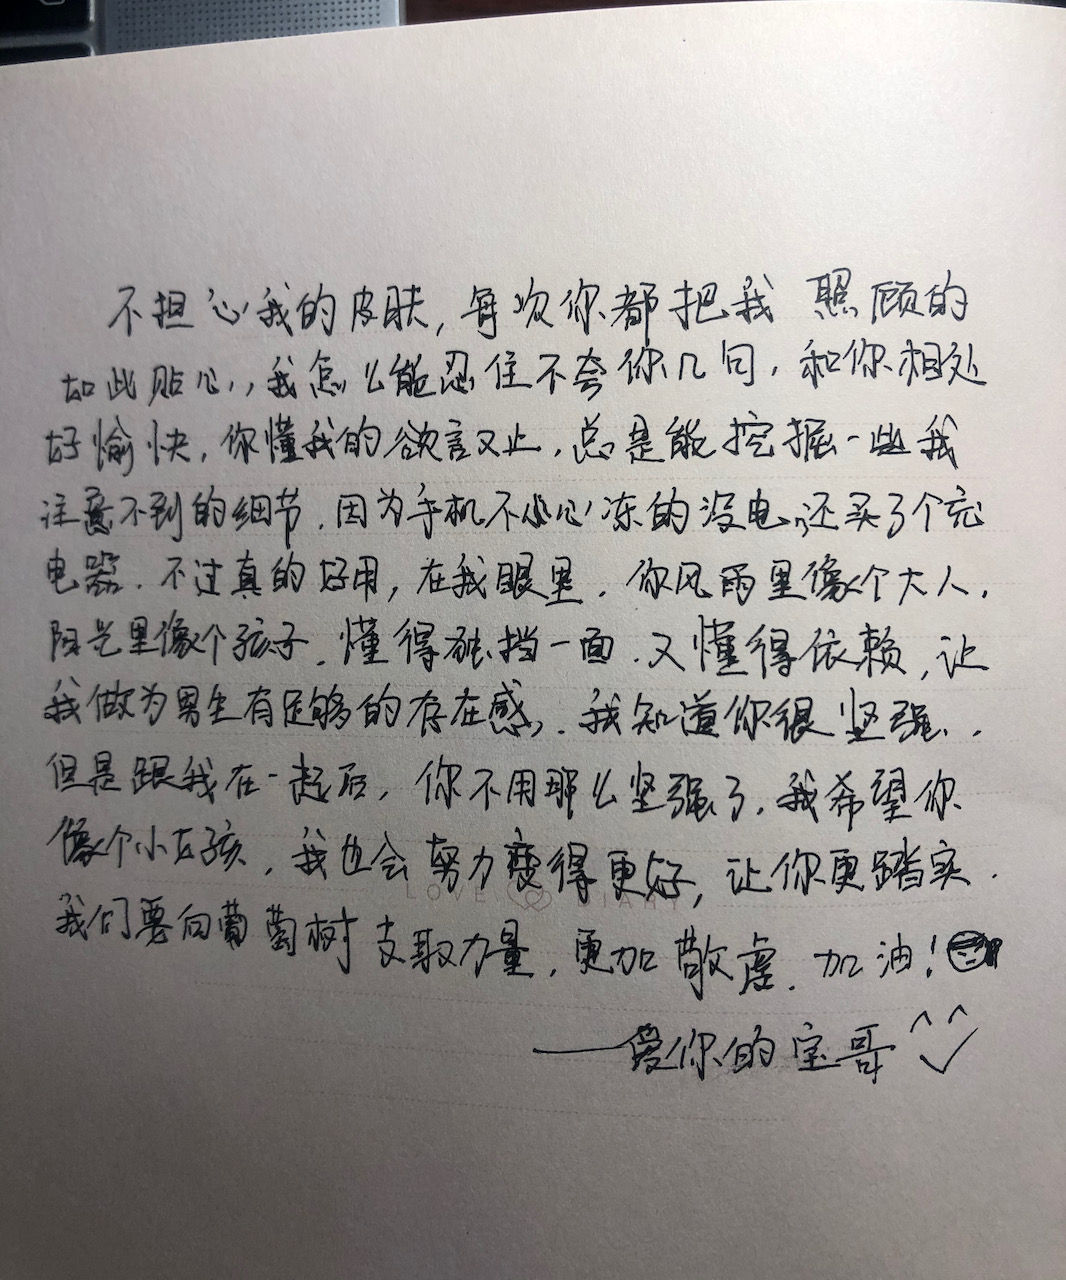 不担心我的皮肤，每次你都把我照顾的
如此贴心，我怎么能忍住不夸你几句，和你相处
好愉快，你懂我的欲言又止，总是能挖掘一些我
注意不到的细节，因为手机不小心冻的没电，还买了个充
电器，不过真的好用，在我眼里，你风雨里像个大人，
阳光里像个孩子，懂得独挡一面，又懂得依赖，让
我做为男生有足够的存在感，我知道你很坚强，
但是跟我在一起后，你不用那么坚强了，我希望你
像个小女孩，我也会努力变得更好，让你更踏实，
LOVE DIARY
我们要向葡萄树支取力量，更加敬虔，加油！
——爱你的宝哥